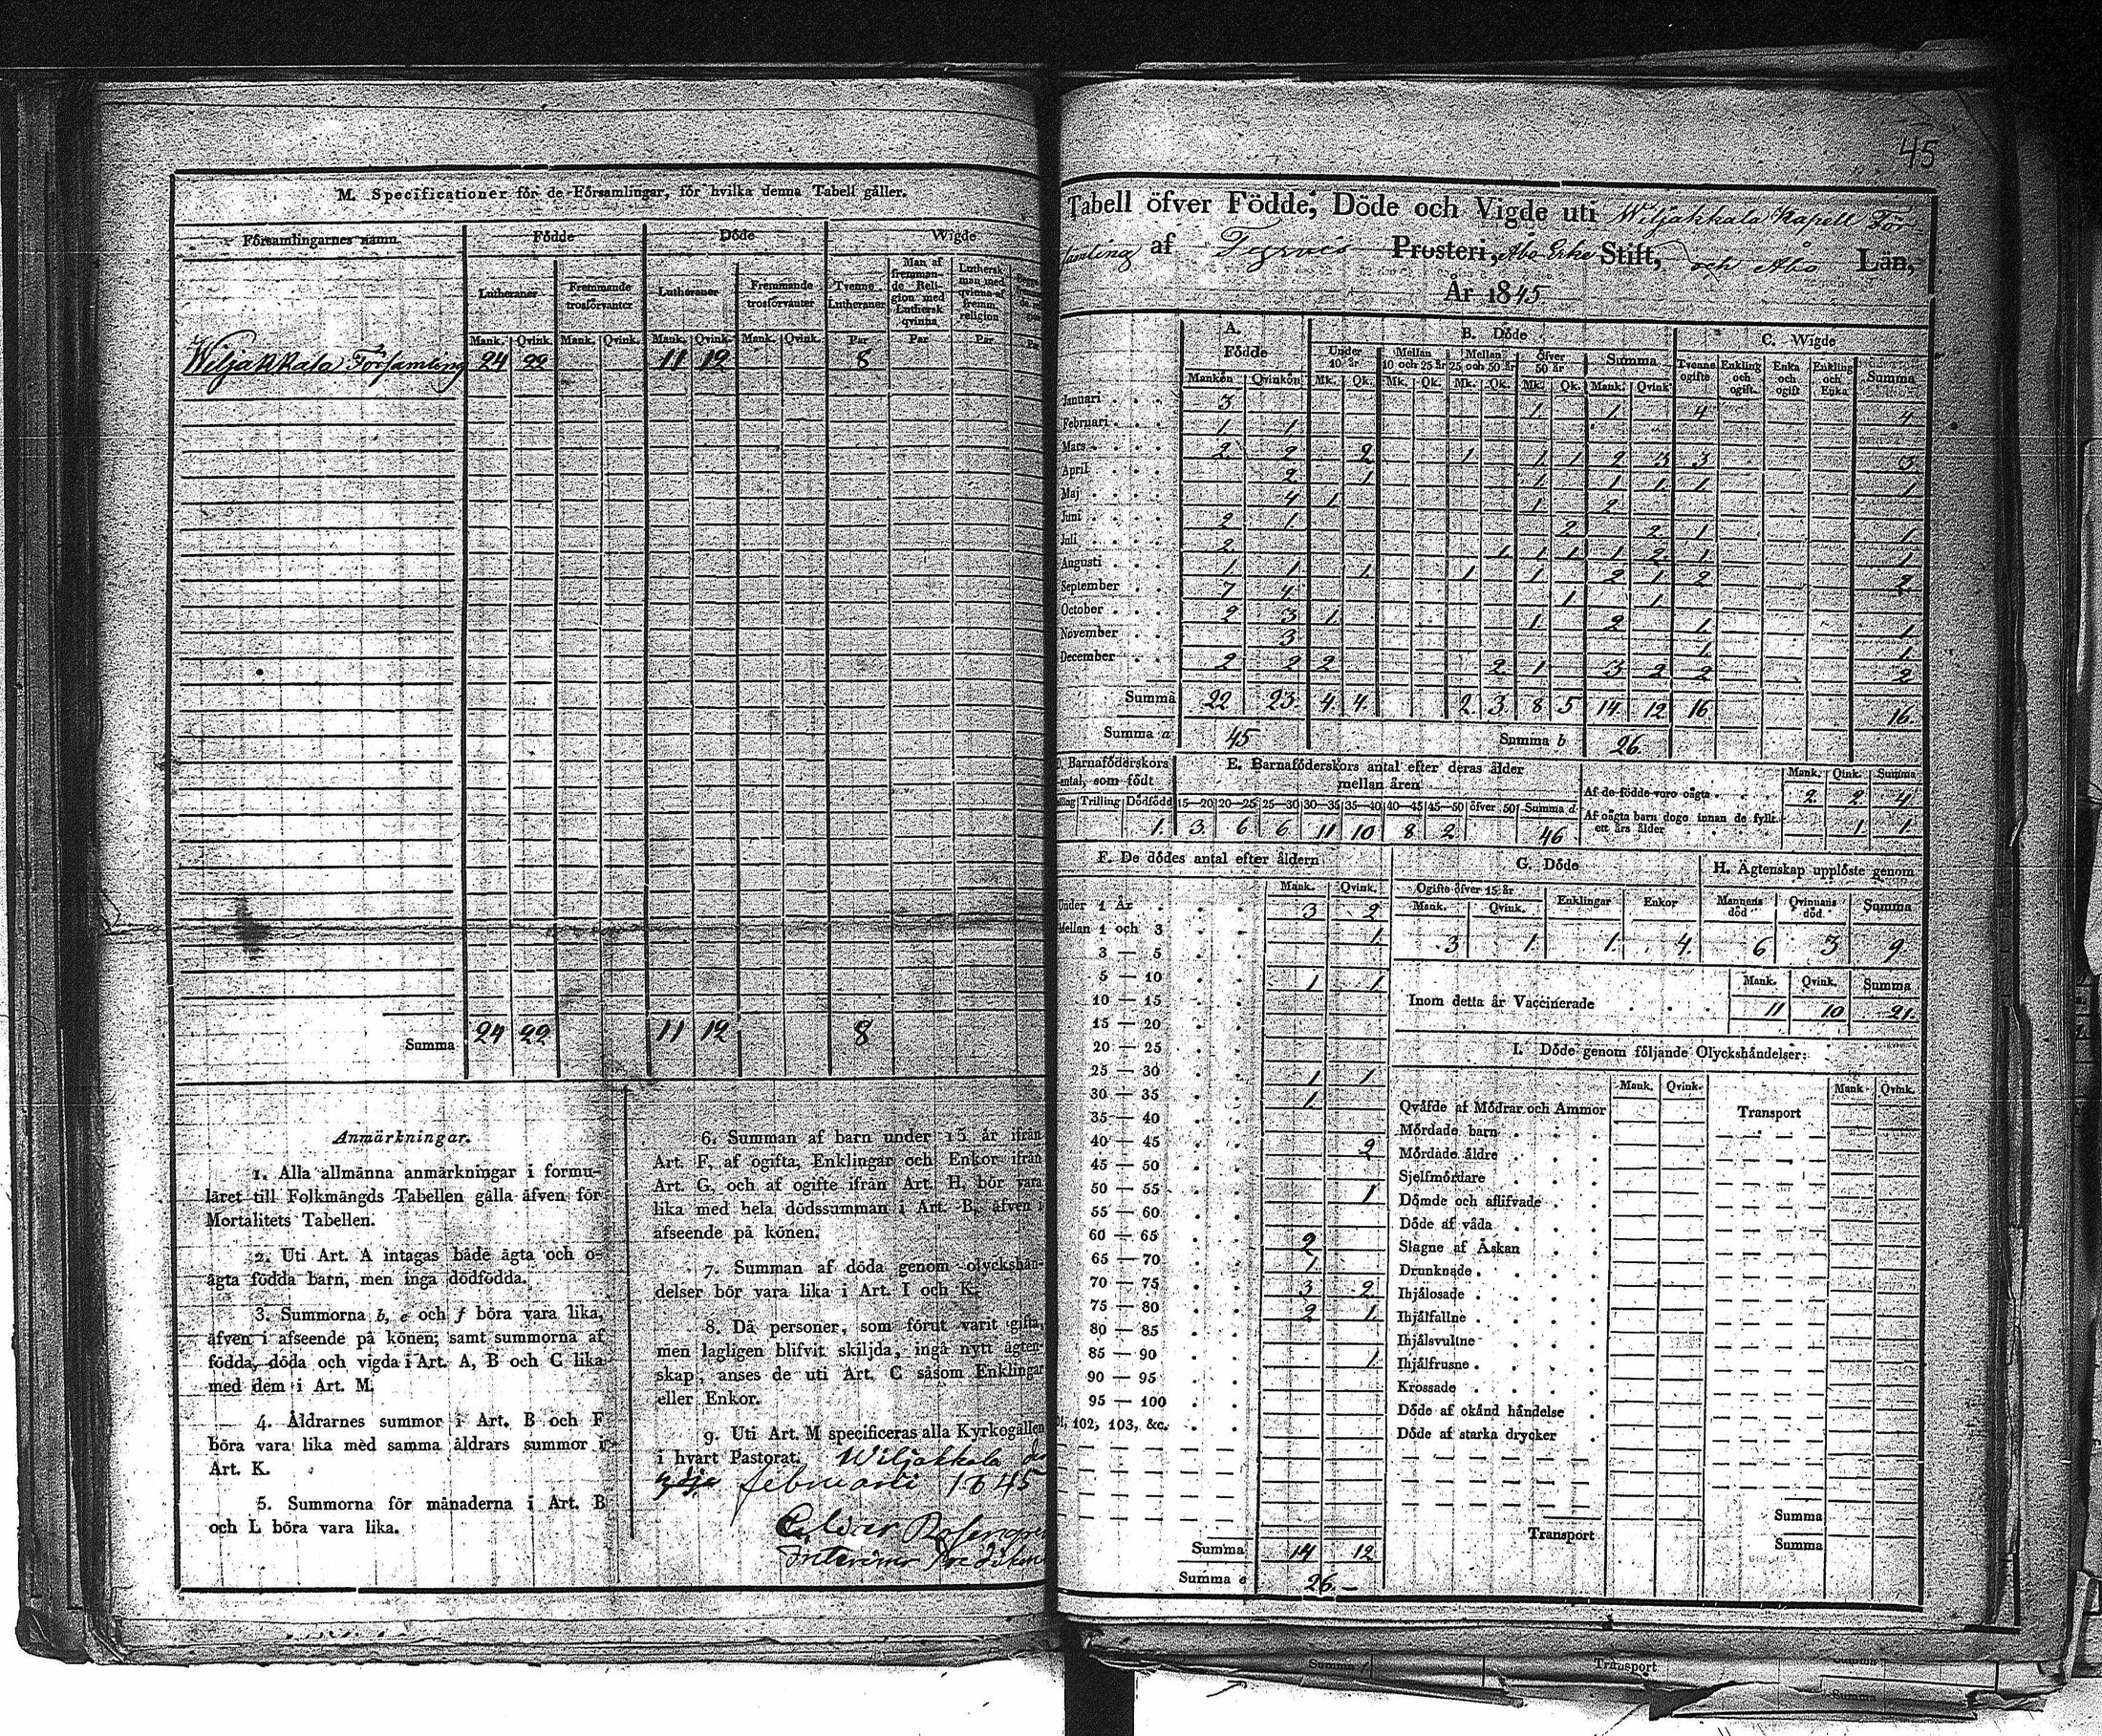 M. Specificationer för de Församlingar, för hvilka denna Tabell gäller.
Församlingarnes namn. Födde Döde Wigde
Lutheraner Fremmande trosförvanter Lutheraner Fremmande trosförvanter Tvenne Lutheraner Man af fremmande Religion med Luthersk qvinna Luthersk man med qvinna af fremm. religion
Mank. Qvink. Mank. Qvink. Mank. Qvink. Mank. Qvink. Par Par Par
Wiljakkala Församling 24 22 11 12 8
Summa 24 22 11 12 8
Anmärkningar.
1. Alla allmänna anmärkningar i formu-
läret till Folkmängds Tabellen gälla äfven för
Mortalitets Tabellen.
2. Uti Art. A intagas både ägta och o-
ägta födda barn, men inga dödfödda.
3. Summorna b, e och f böra vara lika,
äfven i afseende på könen; samt summorna af
födda, döda och vigda i Art. A, B och C lika
med dem i Art. M.
4. Åldrarnes summor i Art. B och F
böra vara lika med samma åldrars summor i
Art. K.
5. Summorna för månaderna i Art. B
och L böra vara lika.
6. Summan af barn under 15 år ifrån
Art. F, af ogifta, Enklingar och Enkor ifrån
Art. G, och af ogifte ifrån Art. H, bör vara
lika med hela dödssumman i Art. B, äfven i
afseende på könen.
7. Summan af döda genom olyckshän-
delser bör vara lika i Art. I och K.
8. Då personer, som förut varit gifta,
men lagligen blifvit skiljda, ingå nytt ägten-
skap, anses de uti Art. C såsom Enklingar
eller Enkor.
9. Uti Art. M specificeras alla Kyrkogällen
i hvart Pastorat. Wiljakkala
februarii 1845
45
Tabell öfver Födde, Döde och Vigde uti Wiljakkala Kapell För-
samling af Tyrvis Prosteri, Åbo Erke Stift, och Åbo Län,
År 1845
A. Födde B. Döde C. Wigde
Under 10 år Mellan 10 och 25 år Mellan 25 och 50 år Öfver 50 år Summa Tvenne ogifte Enkling och ogift. Enka och ogift Enkling och Enka Summa
Mankön Qvinkön Mk. Qk. Mk. Qk. Mk. Qk. Mk. Qk. Mank. Qvink.
Januari 3 1 1 4 4
Februari 1 1
Mars 2 2 2 1 1 1 2 3 3 3
April 2 1 1 1 1 1 1
Maj 4 1 1 2
Juni 2 1 2 2 1 1
Juli 2 1 1 1 1 2 1 1
Augusti 1 1 1 1 1 2 1 2 2
September 7 4 1 1
October 2 3 1 1 2 1 1
November 3 1 1
December 2 2 2 2 1 3 2 2 2
Summa 22 23 4 4 2 3 8 5 14 12 16 16
Summa a 45 Summa b 26
D. Barnaföderskors antal, som födt E. Barnaföderskors antal efter deras ålder mellan åren
Trilling Dödfödd 15—20 20—25 25—30 30—35 35—40 40—45 45—50 öfver 50 Summa d
1 3 6 6 11 10 8 2 46
Mank. Qink. Summa
Af de födde voro oägta 2 2 4
Af oägta barn dogo innan de fyllt ett års ålder 1 1
F. De dödes antal efter åldern
Mank. Qvink.
Under 1 År 3 2
Mellan 1 och 3 1
3 — 5
5 — 10 1 1
10 — 15
15 — 20
20 — 25
25 — 30 1 1
30 — 35 1
35 — 40
40 — 45 2
45 — 50
50 — 55 1
55 — 60
60 — 65 2
65 — 70 1
70 — 75 3 2
75 — 80 2 1
80 — 85
85 — 90 1
90 — 95
95 — 100
102, 103, &c.
Summa 14 12
Summa e 26
G. Döde
Ogifte öfver 15 år Enklingar Enkor
Mank. Qvink.
3 1 1 4
H. Ägtenskap upplöste genom
Mannens död Qvinnans död. Summa
6 3 9
Mank. Qvink. Summa
Inom detta år Vaccinerade 11 10 21
I. Döde genom följande Olyckshändelser:
Mank. Qvink. Mank. Qvink.
Qväfde af Mödrar och Ammor Transport
Mördade barn
Mördade äldre
Sjelfmördare
Dömde och aflifvade
Döde af våda
Slagne af Åskan
Drunknade
Ihjälosade
Ihjälfallne
Ihjälsvultne
Ihjälfrusne
Krossade
Döde af okänd händelse
Döde af starka drycker
Summa
Transport Summa
Summa f Transport Summa
Summa